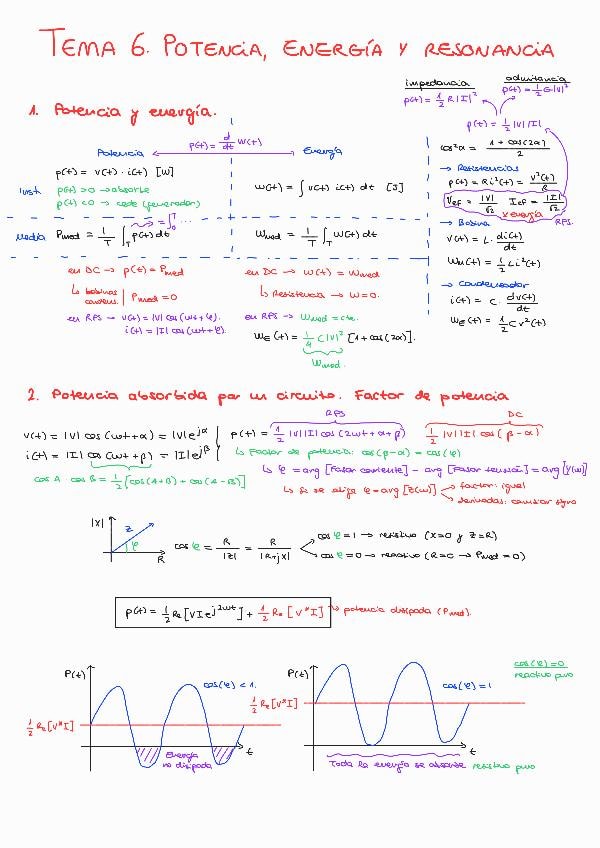 TEMA 6. POTENCIA, ENERGÍA Y RESONANCIA
impedancia
p(t) = 1/2 R|I|²
admitancia
p(t) = 1/2 G|V|²
p(t) = 1/2 |V||I|
1. Potencia y energía.
Potencia
p(t) = d/dt W(t)
Energía
Inst.
p(t) = v(t) · i(t) [W]
p(t) > 0 → absorbe
p(t) < 0 → cede (generador)
w(t) = ∫ v(t) i(t) dt [J]
Media
Pmed = 1/T ∫_T p(t) dt
→ = ∫_0^T ...
Wmed = 1/T ∫_T W(t) dt
en DC → p(t) = Pmed
↳ bobinas
condens. | Pmed = 0
en RPS → v(t) = |V| cos(wt+φ).
i(t) = |I| cos(wt+φ).
en DC → W(t) = Wmed
↳ Resistencia → W = 0.
en RPS → Wmed = cte.
W_E(t) = 1/4 C|V|² [1 + cos(2α)].
Wmed.
cos²α = (1 + cos(2α))/2
→ Resistencias
p(t) = R i²(t) = v²(t)/R
Vef = |V|/√2 Ief = |I|/√2
x energía RPS.
→ Bobina
v(t) = L · di(t)/dt
W_H(t) = 1/2 L i²(t)
→ Condensador
i(t) = C · dv(t)/dt
W_E(t) = 1/2 C v²(t)
2. Potencia absorbida por un circuito. Factor de potencia
v(t) = |V| cos(wt+α) = |V|e^jα
i(t) = |I| cos(wt+β) = |I|e^jβ
cos A · cos B = 1/2 [cos(A+B) + cos(A-B)]
RPS
DC
p(t) = 1/2 |V||I| cos(2wt+α+β) 1/2 |V||I| cos(β-α)
↳ Factor de potencia: cos(β-α) = cos(φ)
↳ φ = arg [Fasor corriente] - arg [Fasor tensión] = arg [Y(w)]
↳ Si se elige φ = arg [Z(w)]
factor: igual
derivadas: cambiar signo
|X|
Z
φ
R
cos φ = R/|Z| = R/|R+jX|
cos φ = 1 → resistivo (X=0 y Z=R)
cos φ = 0 → reactivo (R=0 → Pmed = 0)
p(t) = 1/2 Re [VI e^j2wt] + 1/2 Re [V*I]
→ potencia disipada (Pmed).
P(t)
cos(φ) < 1.
1/2 Re [V*I]
Energía
no disipada
t
P(t)
cos(φ) = 1
1/2 Re [V*I]
t
Toda la energía se absorbe resistivo puro
cos(φ) = 0
reactivo puro